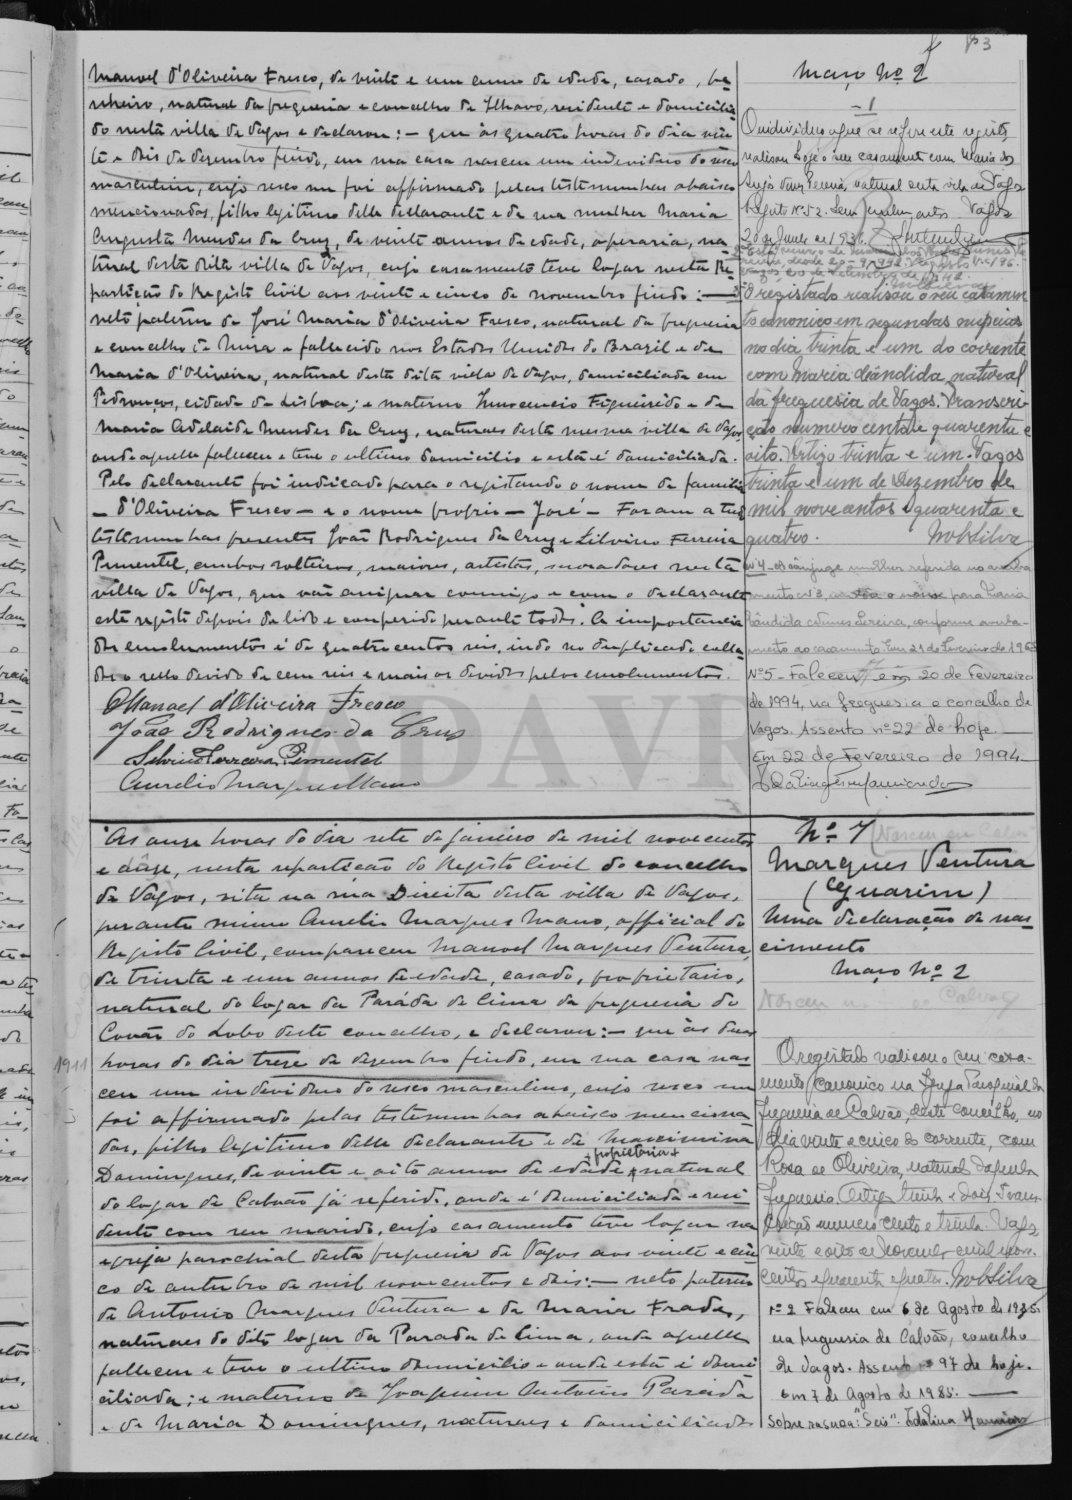 Manoel d'Oliveira Fresco, de vinte e um annos de edade, casado, ba-
nheiro, natural da freguesia e concelho de Ilhavo, residente e domicilia-
do nesta villa de Vagos e declarou:- que ás quatro horas do dia vin-
te e dois de dezembro findo, em sua casa nasceu um individuo do sexo
masculino, cujo sexo me foi affirmado pelas testemunhas abaixo
mencionadas, filho legitimo delle declarante e de sua mulher Maria
Augusta Mendes da Cruz, de vinte annos de edade, operaria, na-
tural desta dita villa de Vagos, cujo casamento teve logar nesta Re-
partição do Registo Civil aos vinte e cinco de novembro findo:-
neto paterno de José Maria d'Oliveira Fresco, natural da freguesia
e concelho de Mira e fallecido nos Estados Unidos do Brazil e de
Maria d'Oliveira, natural desta dita villa de Vagos, domiciliada em
Pedrouços, cidade de Lisboa; e materno Innocencio Figueiredo e de
Maria Adelaide Mendes da Cruz, naturaes desta mesma villa de Vagos,
onde aquelle falleceu e teve o ultimo domicilio e esta é domiciliada.
Pelo declarante foi indicado para o registando o nome de familia
- d'Oliveira Fresco - e o nome proprio - José - Foram a tudo
testemunhas presentes João Rodrigues da Cruz e Silvino Ferreira
Pimentel, ambos solteiros, maiores, artistas, moradores nesta
villa de Vagos, que vão assignar commigo e com o declarante
este registo depois de lido e conferido perante todos. A importancia
dos emolumentos é de quatrocentos reis, indo no duplicado colla-
do o sello devido de cem reis e mais os devidos pelos emolumentos.
Manoel d'Oliveira Fresco
João Rodrigues da Cruz
Silvino Ferreira Pimentel
Aurelio Marques Mano
Maço Nº 2
- 1
O individuo a que se refere este registo,
realisou hoje o seu casamento com Maria dos
Anjos natural desta vila de Vagos
Registo Nº 52. Vagos
20 de de 193
O registado realisou o seu casamen-
to canonico em segundas nupcias
no dia trinta e um do corrente
com Maria Candida, natural
da freguesia de Vagos. Transcri-
ção numero cento e quarenta e
oito. Artigo trinta e um. Vagos
trinta e um de Dezembro de
mil novecentos e quarenta e
quatro. MobSilva
Nº 4 - O cônjuge mulher referida no averba-
mento nº 3, o nome para Maria
Cândida Pereira, conforme averba-
mento ao casamento. Em 21 de Fevereiro de 196
Nº 5 - Faleceu em 20 de Fevereiro
de 1994, na freguesia e concelho de
Vagos. Assento nº 22 de hoje.
Em 22 de Fevereiro de 1994
ADAVR
Ás onze horas do dia sete de janeiro de mil novecentos
e dôze, nesta repartição do Registo Civil do concelho
de Vagos, sita na rua Direita desta villa de Vagos,
perante mim Aurelio Marques Mano, official do
Registo Civil, compareceu Manoel Marques Ventura,
de trinta e um annos de edade, casado, proprietario,
natural do logar da Paráda de Cima da freguesia do
Covão do Lobo deste concelho, e declarou:- que ás duas
horas do dia treze de dezembro findo, em sua casa nas-
ceu um individuo do sexo masculino, cujo sexo me
foi affirmado pelas testemunhas abaixo menciona-
das, filho legitimo delle declarante e de
+ proprietaria +
Domingues, de vinte e oito annos de edade, natural
do logar de Calvão já referido, onde é domiciliada e resi-
dente com seu marido, cujo casamento teve logar na
egreja parochial desta freguesia de Vagos aos vinte e cin-
co de outubro de mil novecentos e dois:- neto paterno
de Antonio Marques Ventura e de Maria Frade,
naturaes do dito logar da Parada de Cima, onde aquelle
falleceu e teve o ultimo domicilio e onde esta é domi-
ciliada; e materno de Joaquim Antonio Parada
e de Maria Domingues, naturaes e domiciliados
1911
Nº 7
Marques Ventura
(Guarim)
Uma declaração de nas-
cimento
Maço Nº 2
O registado realisou o seu casa-
mento canonico na Igreja Paroquial da
freguesia de Calvão, deste concelho, no
dia vinte e cinco do corrente, com
Rosa de Oliveira, natural daquela
freguesia. Artigo trinta e dois. Trans-
crição numero cento e trinta. Vagos,
vinte e oito de Novembro de mil nove-
centos e quarenta e quatro. MobSilva
Nº 2 Faleceu em 6 de Agosto de 1985
na freguesia de Calvão, concelho
de Vagos. Assento nº 97 de hoje.
Em 7 de Agosto de 1985.
Sobre rasura: "Seis".